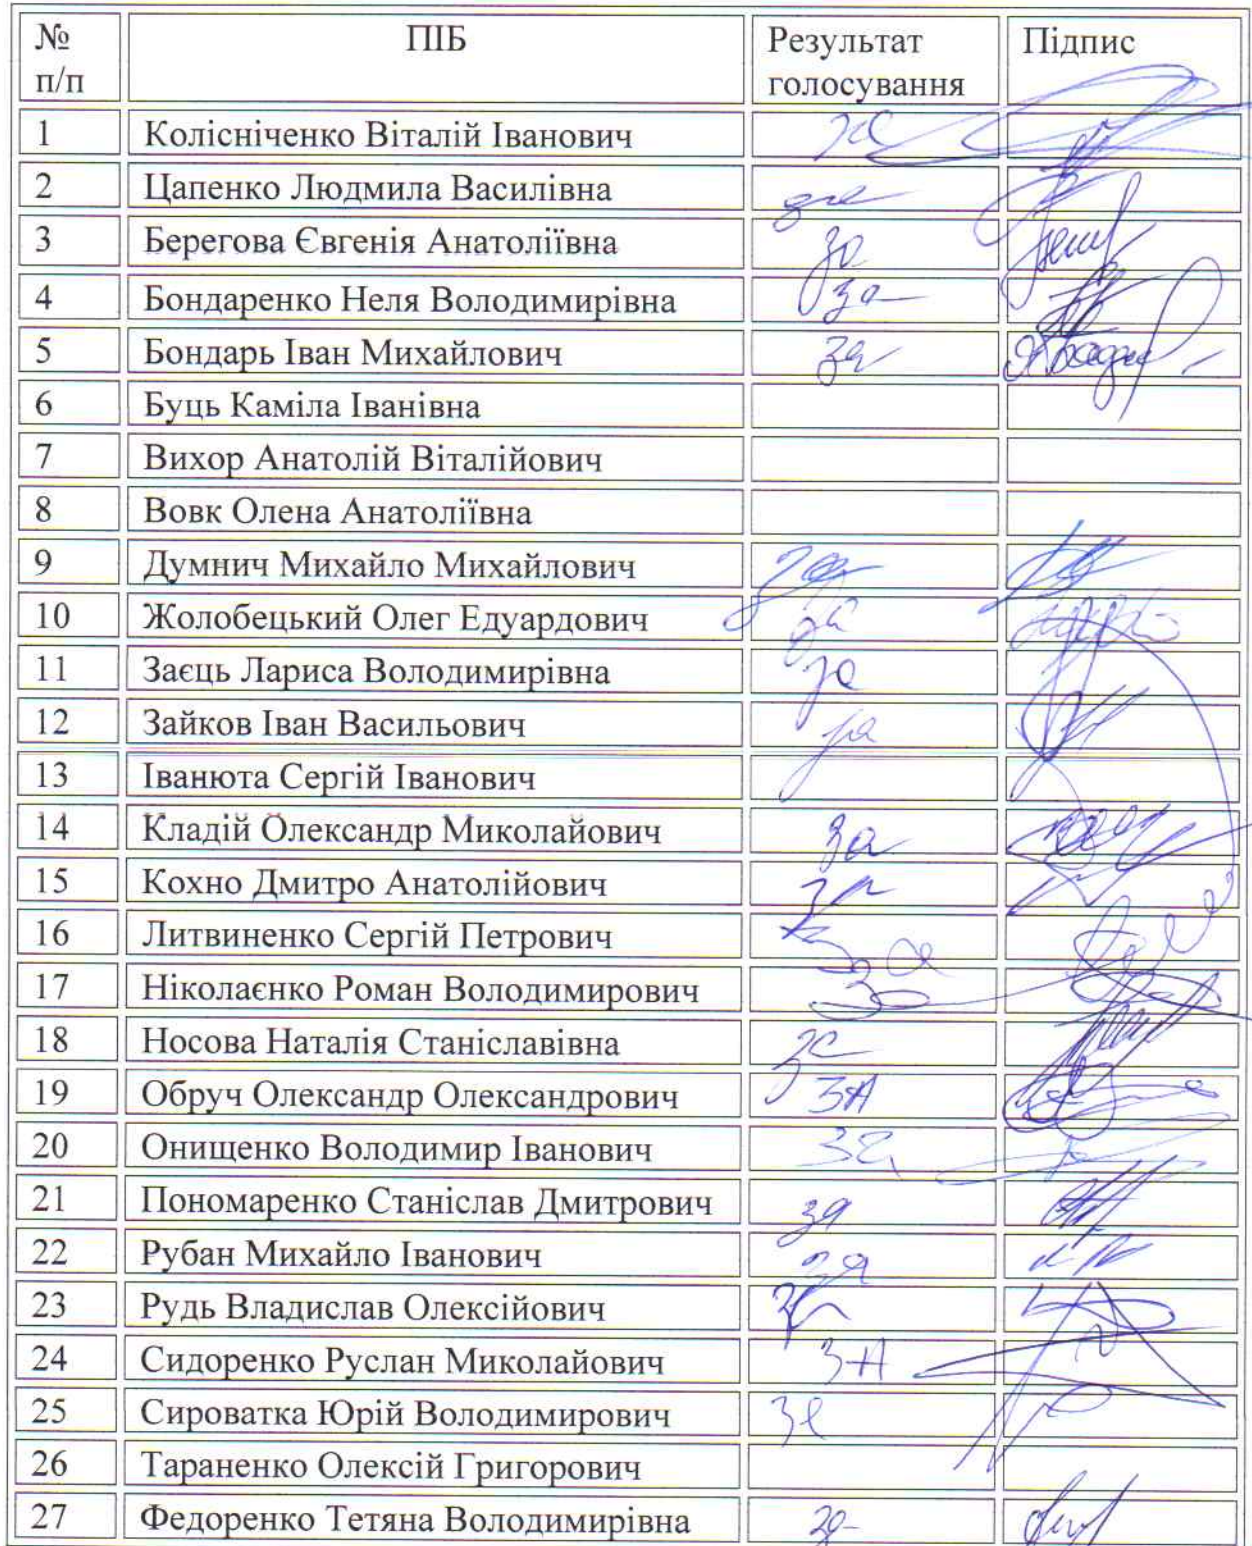 № п/п ПІБ Результат голосування Підпис
1 Колісніченко Віталій Іванович за
2 Цапенко Людмила Василівна за
3 Берегова Євгенія Анатоліївна за
4 Бондаренко Неля Володимирівна за
5 Бондарь Іван Михайлович за
6 Буць Каміла Іванівна
7 Вихор Анатолій Віталійович
8 Вовк Олена Анатоліївна
9 Думнич Михайло Михайлович за
10 Жолобецький Олег Едуардович за
11 Заєць Лариса Володимирівна за
12 Зайков Іван Васильович за
13 Іванюта Сергій Іванович
14 Кладій Олександр Миколайович за
15 Кохно Дмитро Анатолійович за
16 Литвиненко Сергій Петрович за
17 Ніколаєнко Роман Володимирович за
18 Носова Наталія Станіславівна за
19 Обруч Олександр Олександрович ЗА
20 Онищенко Володимир Іванович за
21 Пономаренко Станіслав Дмитрович за
22 Рубан Михайло Іванович за
23 Рудь Владислав Олексійович за
24 Сидоренко Руслан Миколайович ЗА
25 Сироватка Юрій Володимирович за
26 Тараненко Олексій Григорович
27 Федоренко Тетяна Володимирівна за